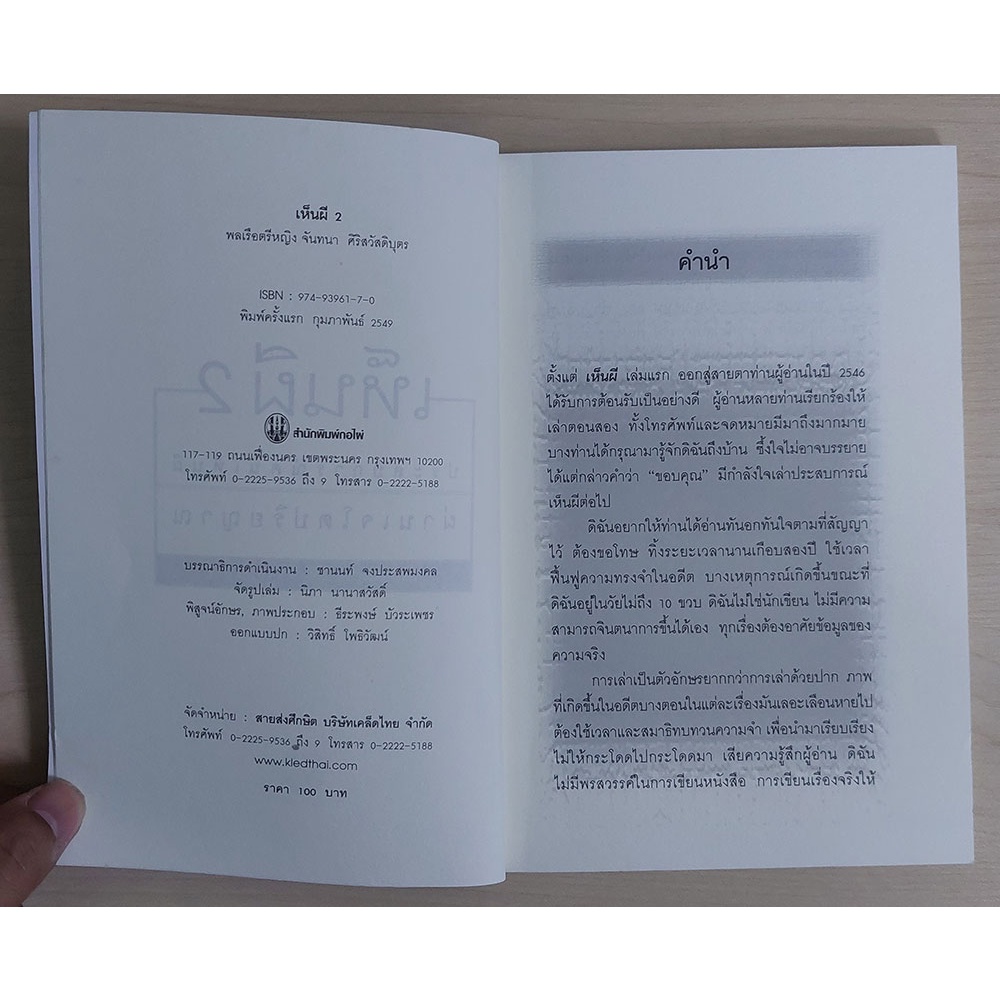 เห็นผี 2
พลเรือตรีหญิง จันทนา ศิริสวัสดิบุตร
ISBN : 974-93961-7-0
พิมพ์ครั้งแรก กุมภาพันธ์ 2549
สำนักพิมพ์กอไผ่
117-119 ถนนเฟื่องนคร เขตพระนคร กรุงเทพฯ 10200
โทรศัพท์ 0-2225-9536 ถึง 9 โทรสาร 0-2222-5188
บรรณาธิการดำเนินงาน : ชานนท์ จงประสพมงคล
จัดรูปเล่ม : นิภา นานาสวัสดิ์
พิสูจน์อักษร, ภาพประกอบ : ธีระพงษ์ บัวระเพชร
ออกแบบปก : วิสิทธิ์ โพธิวัฒน์
จัดจำหน่าย : สายส่งศึกษิต บริษัทเคล็ดไทย จำกัด
โทรศัพท์ 0-2225-9536 ถึง 9 โทรสาร 0-2222-5188
www.kledthai.com
ราคา 100 บาท
คำนำ
ตั้งแต่ เห็นผี เล่มแรก ออกสู่สายตาท่านผู้อ่านในปี 2546
ได้รับการต้อนรับเป็นอย่างดี ผู้อ่านหลายท่านเรียกร้องให้
เล่าตอนสอง ทั้งโทรศัพท์และจดหมายมีมาถึงมากมาย
บางท่านได้กรุณามารู้จักดิฉันถึงบ้าน ซึ้งใจไม่อาจบรรยาย
ได้แต่กล่าวคำว่า “ขอบคุณ” มีกำลังใจเล่าประสบการณ์
เห็นผีต่อไป
ดิฉันอยากให้ท่านได้อ่านทันอกทันใจตามที่สัญญา
ไว้ ต้องขอโทษ ทิ้งระยะเวลานานเกือบสองปี ใช้เวลา
ฟื้นฟูความทรงจำในอดีต บางเหตุการณ์เกิดขึ้นขณะที่
ดิฉันอยู่ในวัยไม่ถึง 10 ขวบ ดิฉันไม่ใช่นักเขียน ไม่มีความ
สามารถจินตนาการขึ้นได้เอง ทุกเรื่องต้องอาศัยข้อมูลของ
ความจริง
การเล่าเป็นตัวอักษรยากกว่าการเล่าด้วยปาก ภาพ
ที่เกิดขึ้นในอดีตบางตอนในแต่ละเรื่องมันเลอะเลือนหายไป
ต้องใช้เวลาและสมาธิทบทวนความจำ เพื่อนำมาเรียบเรียง
ไม่ให้กระโดดไปกระโดดมา เสียความรู้สึกผู้อ่าน ดิฉัน
ไม่มีพรสวรรค์ในการเขียนหนังสือ การเขียนเรื่องจริงให้